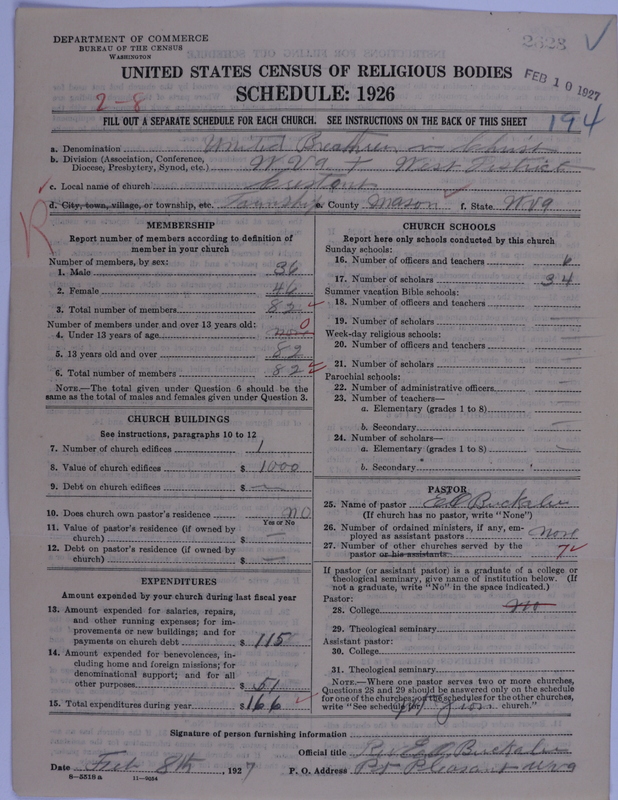 DEPARTMENT OF COMMERCE
BUREAU OF THE CENSUS
WASHINGTON
2623
UNITED STATES CENSUS OF RELIGIOUS BODIES
FEB 10 1927
SCHEDULE: 1926
2-8
FILL OUT A SEPARATE SCHEDULE FOR EACH CHURCH. SEE INSTRUCTIONS ON THE BACK OF THIS SHEET
194
a. Denomination United Breathren in Christ
b. Division (Association, Conference, Diocese, Presbytery, Synod, etc.) W.Va West District
c. Local name of church
d. City, town, village, or township, etc. Township e. County Mason f. State W Va
R
MEMBERSHIP
Report number of members according to definition of member in your church
Number of members, by sex:
1. Male 36
2. Female 46
3. Total number of members 82
Number of members under and over 13 years old:
4. Under 13 years of age none 0
5. 13 years old and over 82
6. Total number of members 82
NOTE.—The total given under Question 6 should be the same as the total of males and females given under Question 3.
CHURCH BUILDINGS
See instructions, paragraphs 10 to 12
7. Number of church edifices 1
8. Value of church edifices $ 1000
9. Debt on church edifices $ —
10. Does church own pastor's residence NO
Yes or No
11. Value of pastor's residence (if owned by church) $ —
12. Debt on pastor's residence (if owned by church) $ —
EXPENDITURES
Amount expended by your church during last fiscal year
13. Amount expended for salaries, repairs, and other running expenses; for improvements or new buildings; and for payments on church debt $ 115
14. Amount expended for benevolences, including home and foreign missions; for denominational support; and for all other purposes $ 51
15. Total expenditures during year $ 166
CHURCH SCHOOLS
Report here only schools conducted by this church
Sunday schools:
16. Number of officers and teachers 6
17. Number of scholars 34
Summer vacation Bible schools:
18. Number of officers and teachers —
19. Number of scholars —
Week-day religious schools:
20. Number of officers and teachers —
21. Number of scholars —
Parochial schools:
22. Number of administrative officers —
23. Number of teachers—
a. Elementary (grades 1 to 8) —
b. Secondary —
24. Number of scholars—
a. Elementary (grades 1 to 8) —
b. Secondary —
PASTOR
25. Name of pastor Buckalew
(If church has no pastor, write "None")
26. Number of ordained ministers, if any, employed as assistant pastors None
27. Number of other churches served by the pastor or his assistants 7
If pastor (or assistant pastor) is a graduate of a college or theological seminary, give name of institution below. (If not a graduate, write "No" in the space indicated.)
Pastor:
28. College No
29. Theological seminary
Assistant pastor:
30. College
31. Theological seminary
NOTE.—Where one pastor serves two or more churches, Questions 28 and 29 should be answered only on the schedule for one of the churches; on the schedules for the other churches, write "See schedule for Zion church."
Signature of person furnishing information
Official title Rev Buckalew
Date Feb 8th, 1927 P. O. Address Pt Pleasant W Va
8—5518 a 11—9054